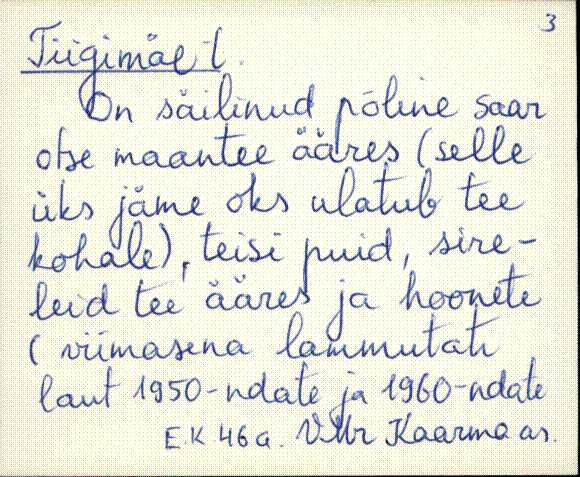 3
Tiigimäe t.
On säilinud põline saar
otse maantee ääres (selle
üks jäme oks ulatub tee
kohale), teisi puid, sire-
leid tee ääres ja hoonete
(viimasena lammutati
laut 1950-ndate ja 1960-ndate
E.K 46 a. VMr Kaarma as.